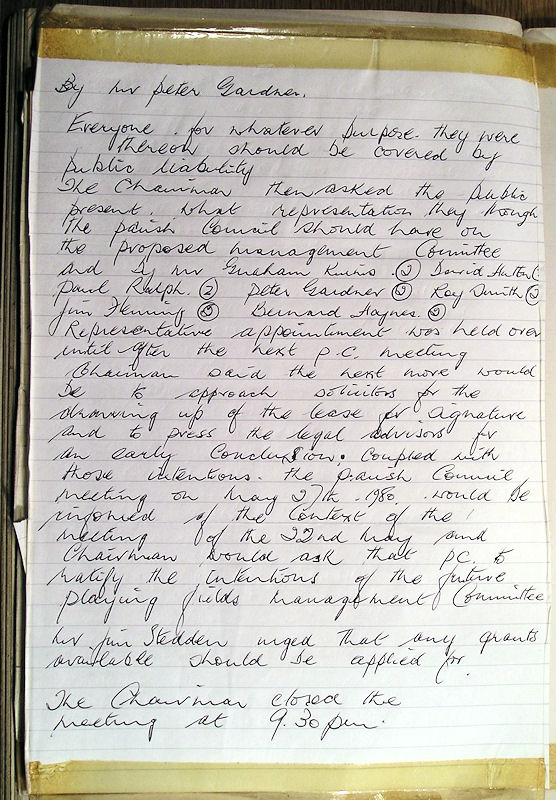 By Mr Peter Gardner.
Everyone. for whatever purpose. they were
thereon should be covered by
public liability
The Chairman then asked the public
present. what representation they though
the parish Council should have on
the proposed management Committee
and by Mr Graham (2) David Hutton (
Paul Ralph. (2) Peter Gardner (2) Roy Smith (2
Jim Fleming (2) Bernard Haynes. (2)
Representative appointment was held over
until after the next P.C. meeting
Chairman said the next move would
be to approach solicitors for the
drawing up of the lease for signature
and to press the legal advisors for
an early conclusion. Coupled with
those intentions. the Parish Council
meeting on May 27th. 1980. would be
informed of the context of the
meeting of the 22nd May and
Chairman would ask that P.C. to
ratify the intentions of the future
playing fields management Committee
Mr Jim Stedden urged that any grants
available should be applied for.
The Chairman closed the
meeting at 9.30 pm.